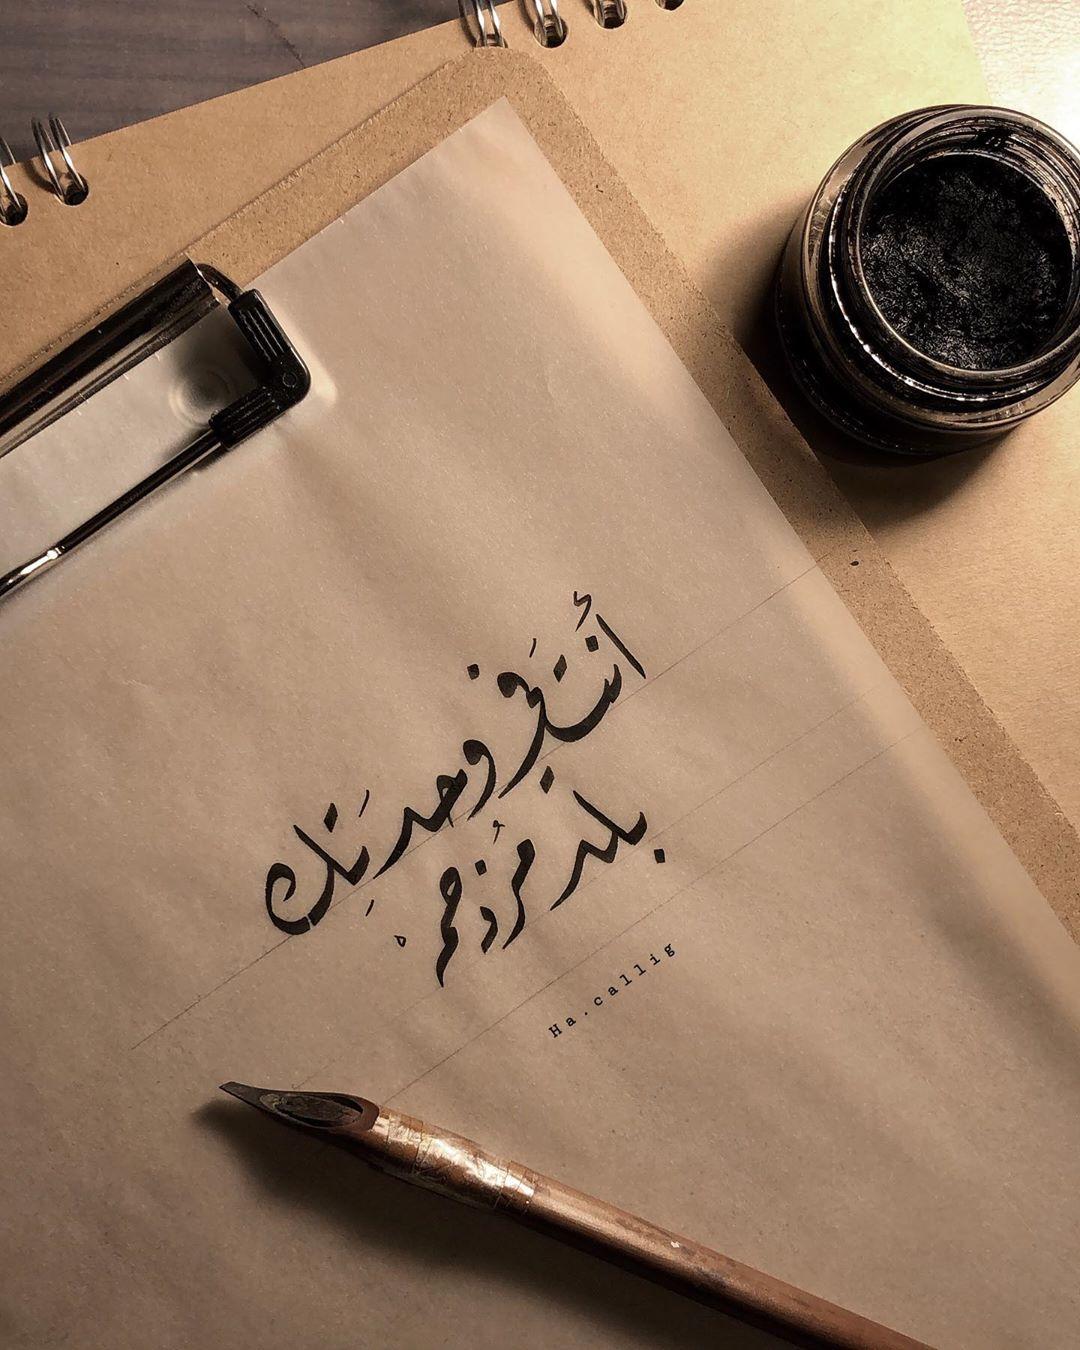 أنتَ في وحدتِكَ
بلدٌ مُزدحمْ
Ha.callig